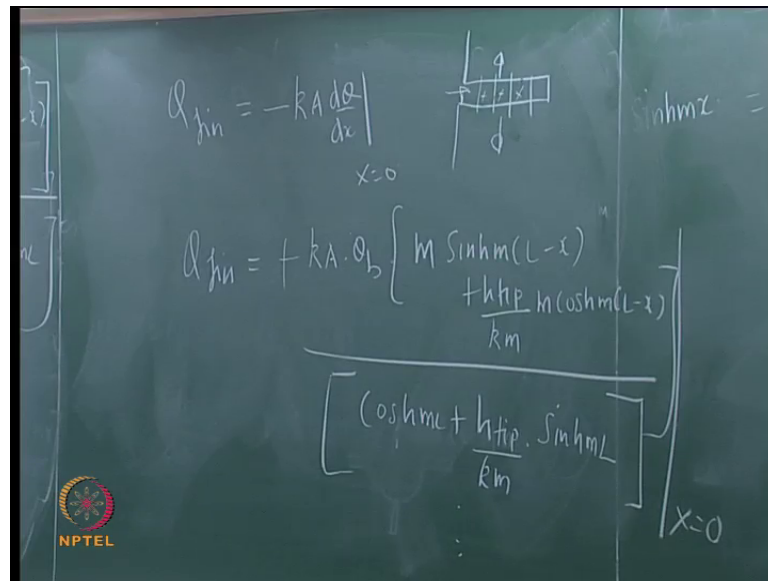 Q_fin = -kA dθ/dx |x=0
sinhmx =
Q_fin = + kA·θ_b { m sinhm(L-x)
+ htip/km m coshm(L-x) ]
[ coshmL + htip/km · sinhmL ] |x=0
NPTEL